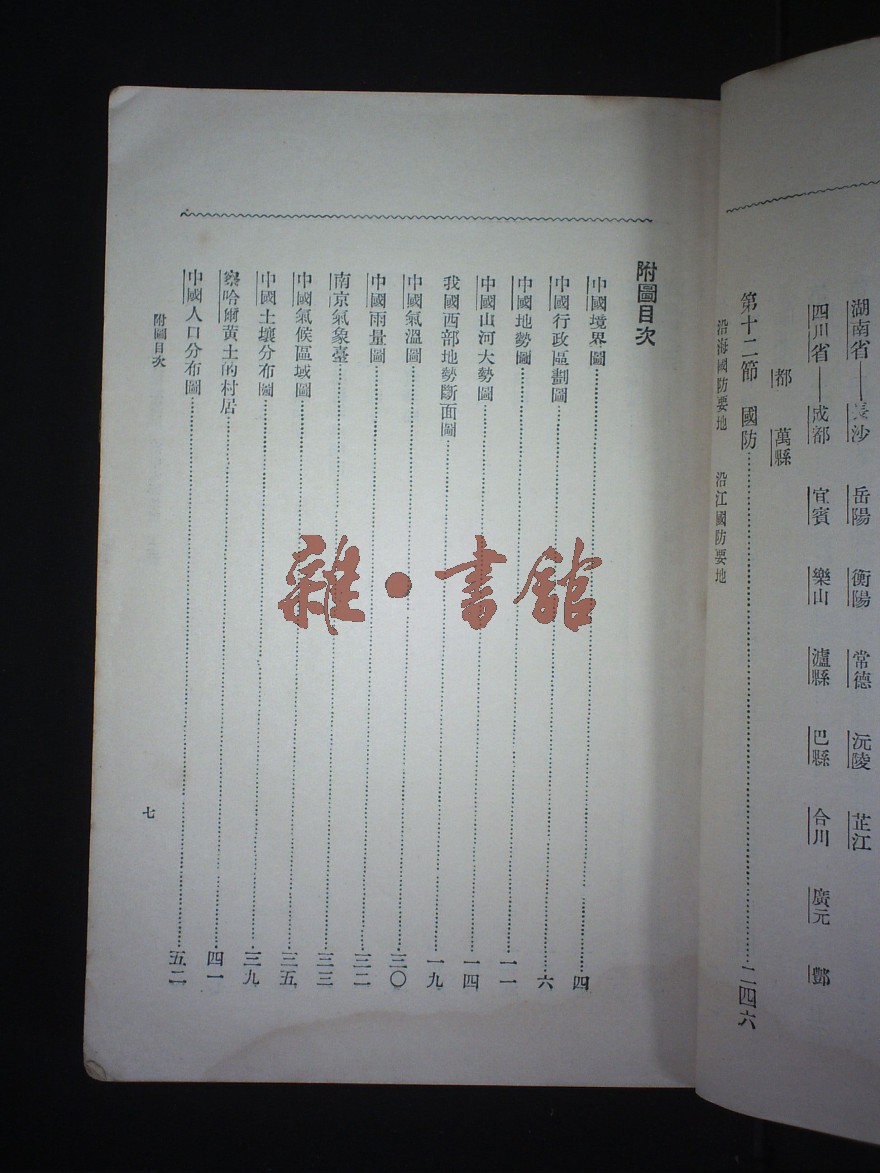 湖南省——長沙 岳陽 衡陽 常德 沅陵 芷江
四川省——成都 宜賓 樂山 瀘縣 巴縣 合川 廣元 酆
都 萬縣
第十二節 國防……二四六
沿海國防要地 沿江國防要地
附圖目次
中國境界圖……四
中國行政區劃圖……六
中國地勢圖……一一
中國山河大勢圖……一四
我國西部地勢斷面圖……一九
中國氣溫圖……三〇
中國雨量圖……三二
南京氣象臺……三三
中國氣候區域圖……三五
中國土壤分布圖……三九
察哈爾黃土的村居……四一
中國人口分布圖……五二
附圖目次
七
雜·書館